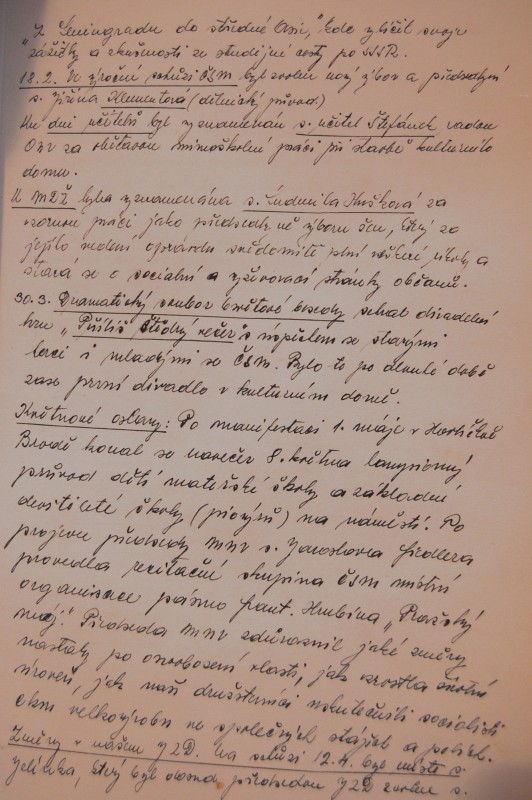 „Z Leningradu do střední Asie," kde vylíčil svoje
zážitky a zkušenosti ze studijní cesty po SSSR.
18.2. Na výroční schůzi ČSM byl zvolen nový výbor a předsedkyní
s. Jiřina Klementová (dělnický původ.)
Ku dni učitelů byl vyznamenán s. učitel Štefánek radou
ONV za obětavou mimoškolní práci při stavbě kulturního
domu.
K MDŽ byla vyznamenána s. Ludmila Kušková za
vzornou práci jako předsedkyně výboru žen, který za
jejího vedení opravdu svědomitě plní veškeré úkoly a
stará se o sociální a vyživovací stránky občanů.
30.3. Dramatický soubor Osvětové besedy sehrál divadelní
hru „Příliš štědrý večer" s úspěchem se starými
herci i mladými ze ČSM. Bylo to po dlouhé době
zase první divadlo v kulturním domě.
Květnové oslavy: Po manifestaci 1. máje v Havlíčkově
Brodě konal se navečer 8. května lampionový
průvod dětí mateřské školy a základní
devítileté školy (pionýrů) na náměstí. Po
projevu předsedy MNV s. Jaroslava Fiedlera
provedla recitační skupina ČSM místní
organisace pásmo Frant. Hrubína „Pražský
máj". Předseda MNV zdůraznil jaké změny
nastaly po osvobození vlasti, jak vzrostla životní
úroveň, jak naši družstevníci uskutečnili socialisti
ckou velkovýrobu ve společných stájích a polích.
Změny v našem JZD. Na schůzi 12.4. byl místo s.
Jelínka, který byl dosud předsedou JZD zvolen s.